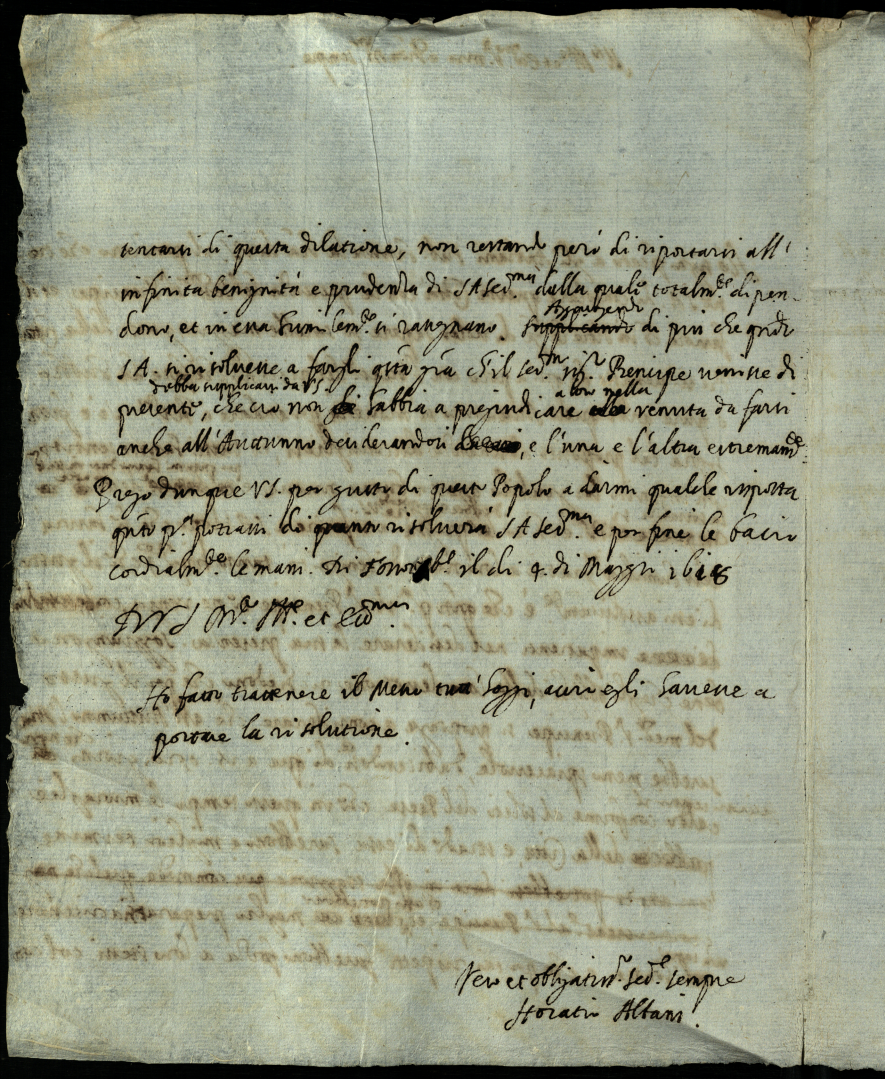 tentarsi di questa dilatione, non restando però di riportarsi all'
infinita benignità e prudenza di S A Ser.ma dalla quale totalm.te dipen-
dono, et in essa humilem.te si rassignano.
Supplicando di più che qndo
S A. si risolvesse a fargli qsta gra ch'il Ser.mo Prencipe venisse di
debba supplicarsi da VS.
presente, che ciò non habbia a pregiudicare a loro nella venuta da farsi
anche all'Auttunno desiderandosi, e l'una e l'altra estremam.te
Prego dunque VS. per gusto di questo Popolo a darmi qualche risposta
qsto pa potrassi di quanto risolverà S A Ser.ma e per fine le bacio
cordialm.te le mani. Di il di 4. di Maggio 1618
D V S M.to Ill.e et Ecc.ma
Ho fatto trattenere il Messo tutt'hoggi, acciò egli havesse a
portare la risolutione.
Vero et obligatiss.o Ser.re sempre
Horatio Albani.